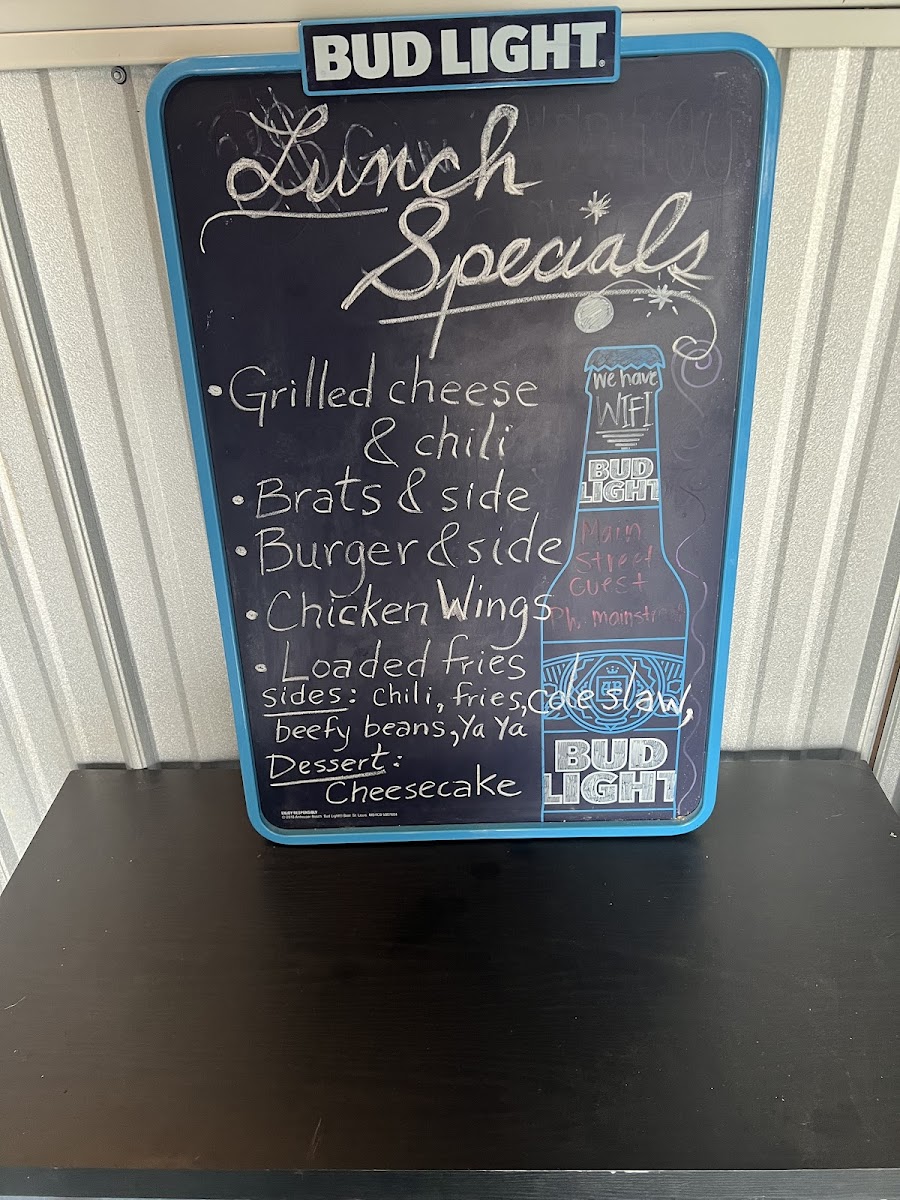 BUD LIGHT
Lunch
Specials
• Grilled cheese
& chili
• Brats & side
• Burger & side
• Chicken Wings
• Loaded fries
sides: chili, fries, cole slaw,
beefy beans, Ya Ya
Dessert:
Cheesecake
We have
WIFI
BUD
LIGHT
Main
Street
Guest
BUD
LIGHT
ENJOY RESPONSIBLY